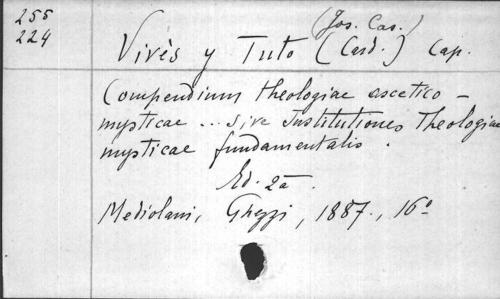 255
224
(Jos. Cas.)
Vivés y Tuto (Card.) Cap.
Compendium theologiae ascetico-
mysticae ... sive Institutiones Theologiae
mysticae fundamentalis.
Ed. 2a.
Mediolani, Ghezzi, 1887., 16º